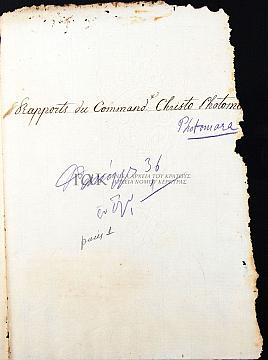 Rapports du Command.t Christo Photom
Photomara
Φάκελλος 36
ΓΑΚ
ΓΕΝΙΚΑ ΑΡΧΕΙΑ ΤΟΥ ΚΡΑΤΟΥΣ
ΑΡΧΕΙΑ ΝΟΜΟΥ ΚΕΡΚΥΡΑΣ